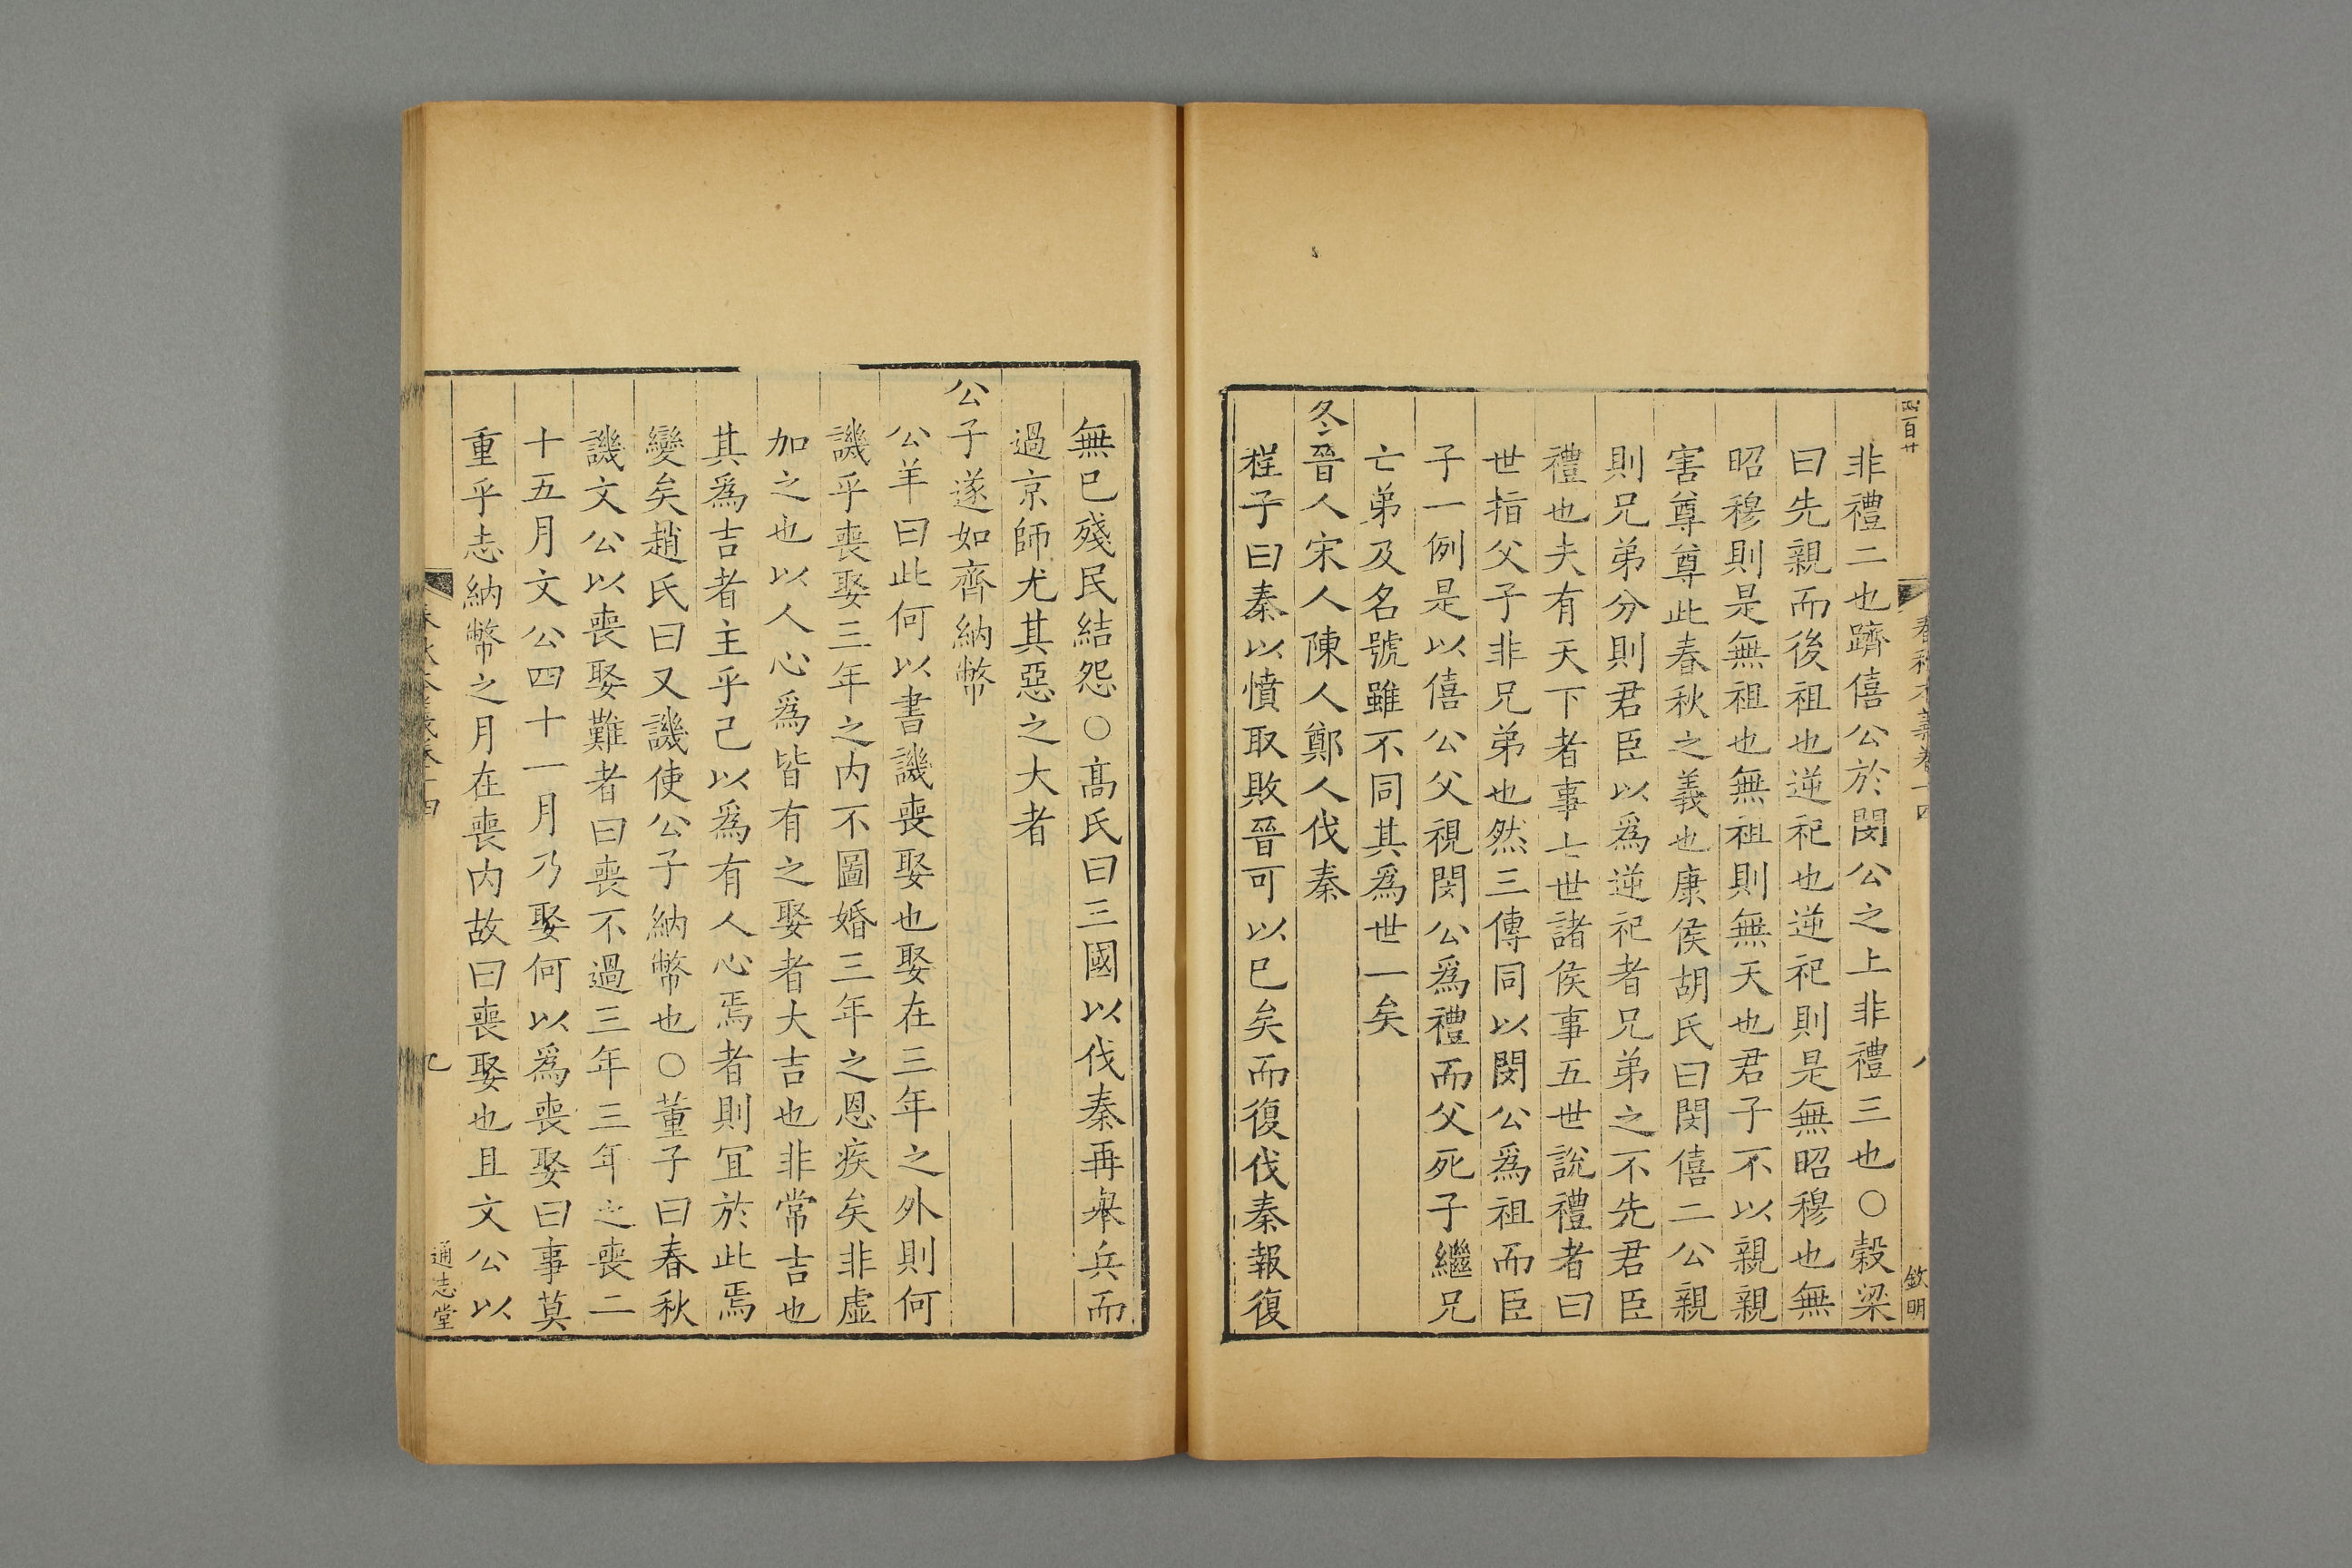 四百廿
春秋本義卷十四
八
欽明
非禮二也躋僖公於閔公之上非禮三也○榖梁
曰先親而後祖也逆祀也逆祀則是無昭穆也無
昭穆則是無祖也無祖則無天也君子不以親親
害尊尊此春秋之義也康侯胡氏曰閔僖二公親
則兄弟分則君臣以爲逆祀者兄弟之不先君臣
禮也夫有天下者事七世諸侯事五世說禮者曰
世指父子非兄弟也然三傳同以閔公爲祖而臣
子一例是以僖公父視閔公爲禮而父死子繼兄
亡弟及名號雖不同其爲世一矣
冬晉人宋人陳人鄭人伐秦
程子曰秦以憤取敗晉可以已矣而復伐秦報復
無已殘民結怨○高氏曰三國以伐秦再舉兵而
過京師尤其惡之大者
公子遂如齊納幣
公羊曰此何以書譏喪娶也娶在三年之外則何
譏乎喪娶三年之内不圖婚三年之恩疾矣非虚
加之也以人心爲皆有之娶者大吉也非常吉也
其爲吉者主乎己以爲有人心焉者則冝於此焉
變矣趙氏曰又譏使公子納幣也○董子曰春秋
譏文公以喪娶難者曰喪不過三年三年之喪二
十五月文公四十一月乃娶何以爲喪娶曰事莫
重乎志納幣之月在喪内故曰喪娶也且文公以
春秋本義卷十四
九
通志堂